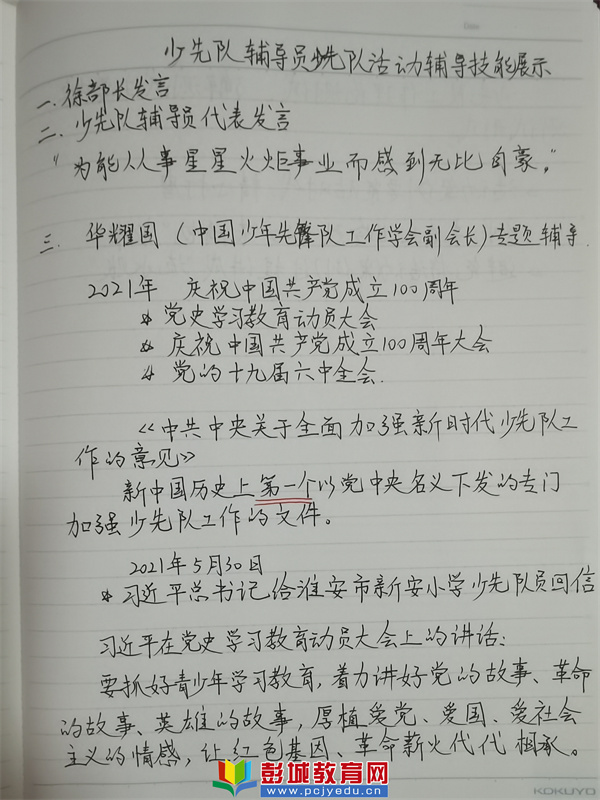 少先队辅导员少先队活动辅导技能展示
一、徐部长发言
二、少先队辅导员代表发言
“为能从事星星火炬事业而感到无比自豪。”
三、华耀国（中国少年先锋队工作学会副会长）专题辅导
2021年 庆祝中国共产党成立100周年
* 党史学习教育动员大会
* 庆祝中国共产党成立100周年大会
* 党的十九届六中全会.
《中共中央关于全面加强新时代少先队工
作的意见》
新中国历史上第一个以党中央名义下发的专门
加强少先队工作的文件。
2021年5月30日
* 习近平总书记给淮安市新安小学少先队员回信
习近平在党史学习教育动员大会上的讲话：
要抓好青少年学习教育，着力讲好党的故事、革命
的故事、英雄的故事，厚植爱党、爱国、爱社会
主义的情感，让红色基因、革命薪火代代相承。
彭城教育网
www.pcjyedu.cn
KOKUYO